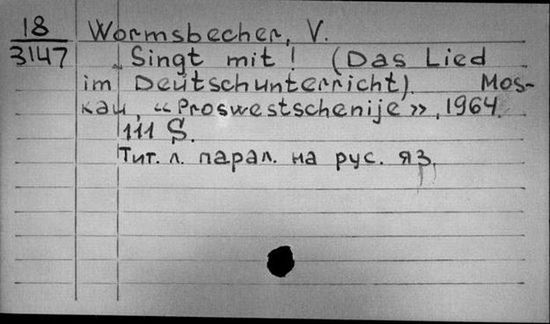 18 Wormsbecher, V.
3147 Singt mit! (Das Lied
im Deutschunterricht). Mos-
kau, «Proswestschenije», 1964.
111 S.
Тит. л. парал. на рус. яз.